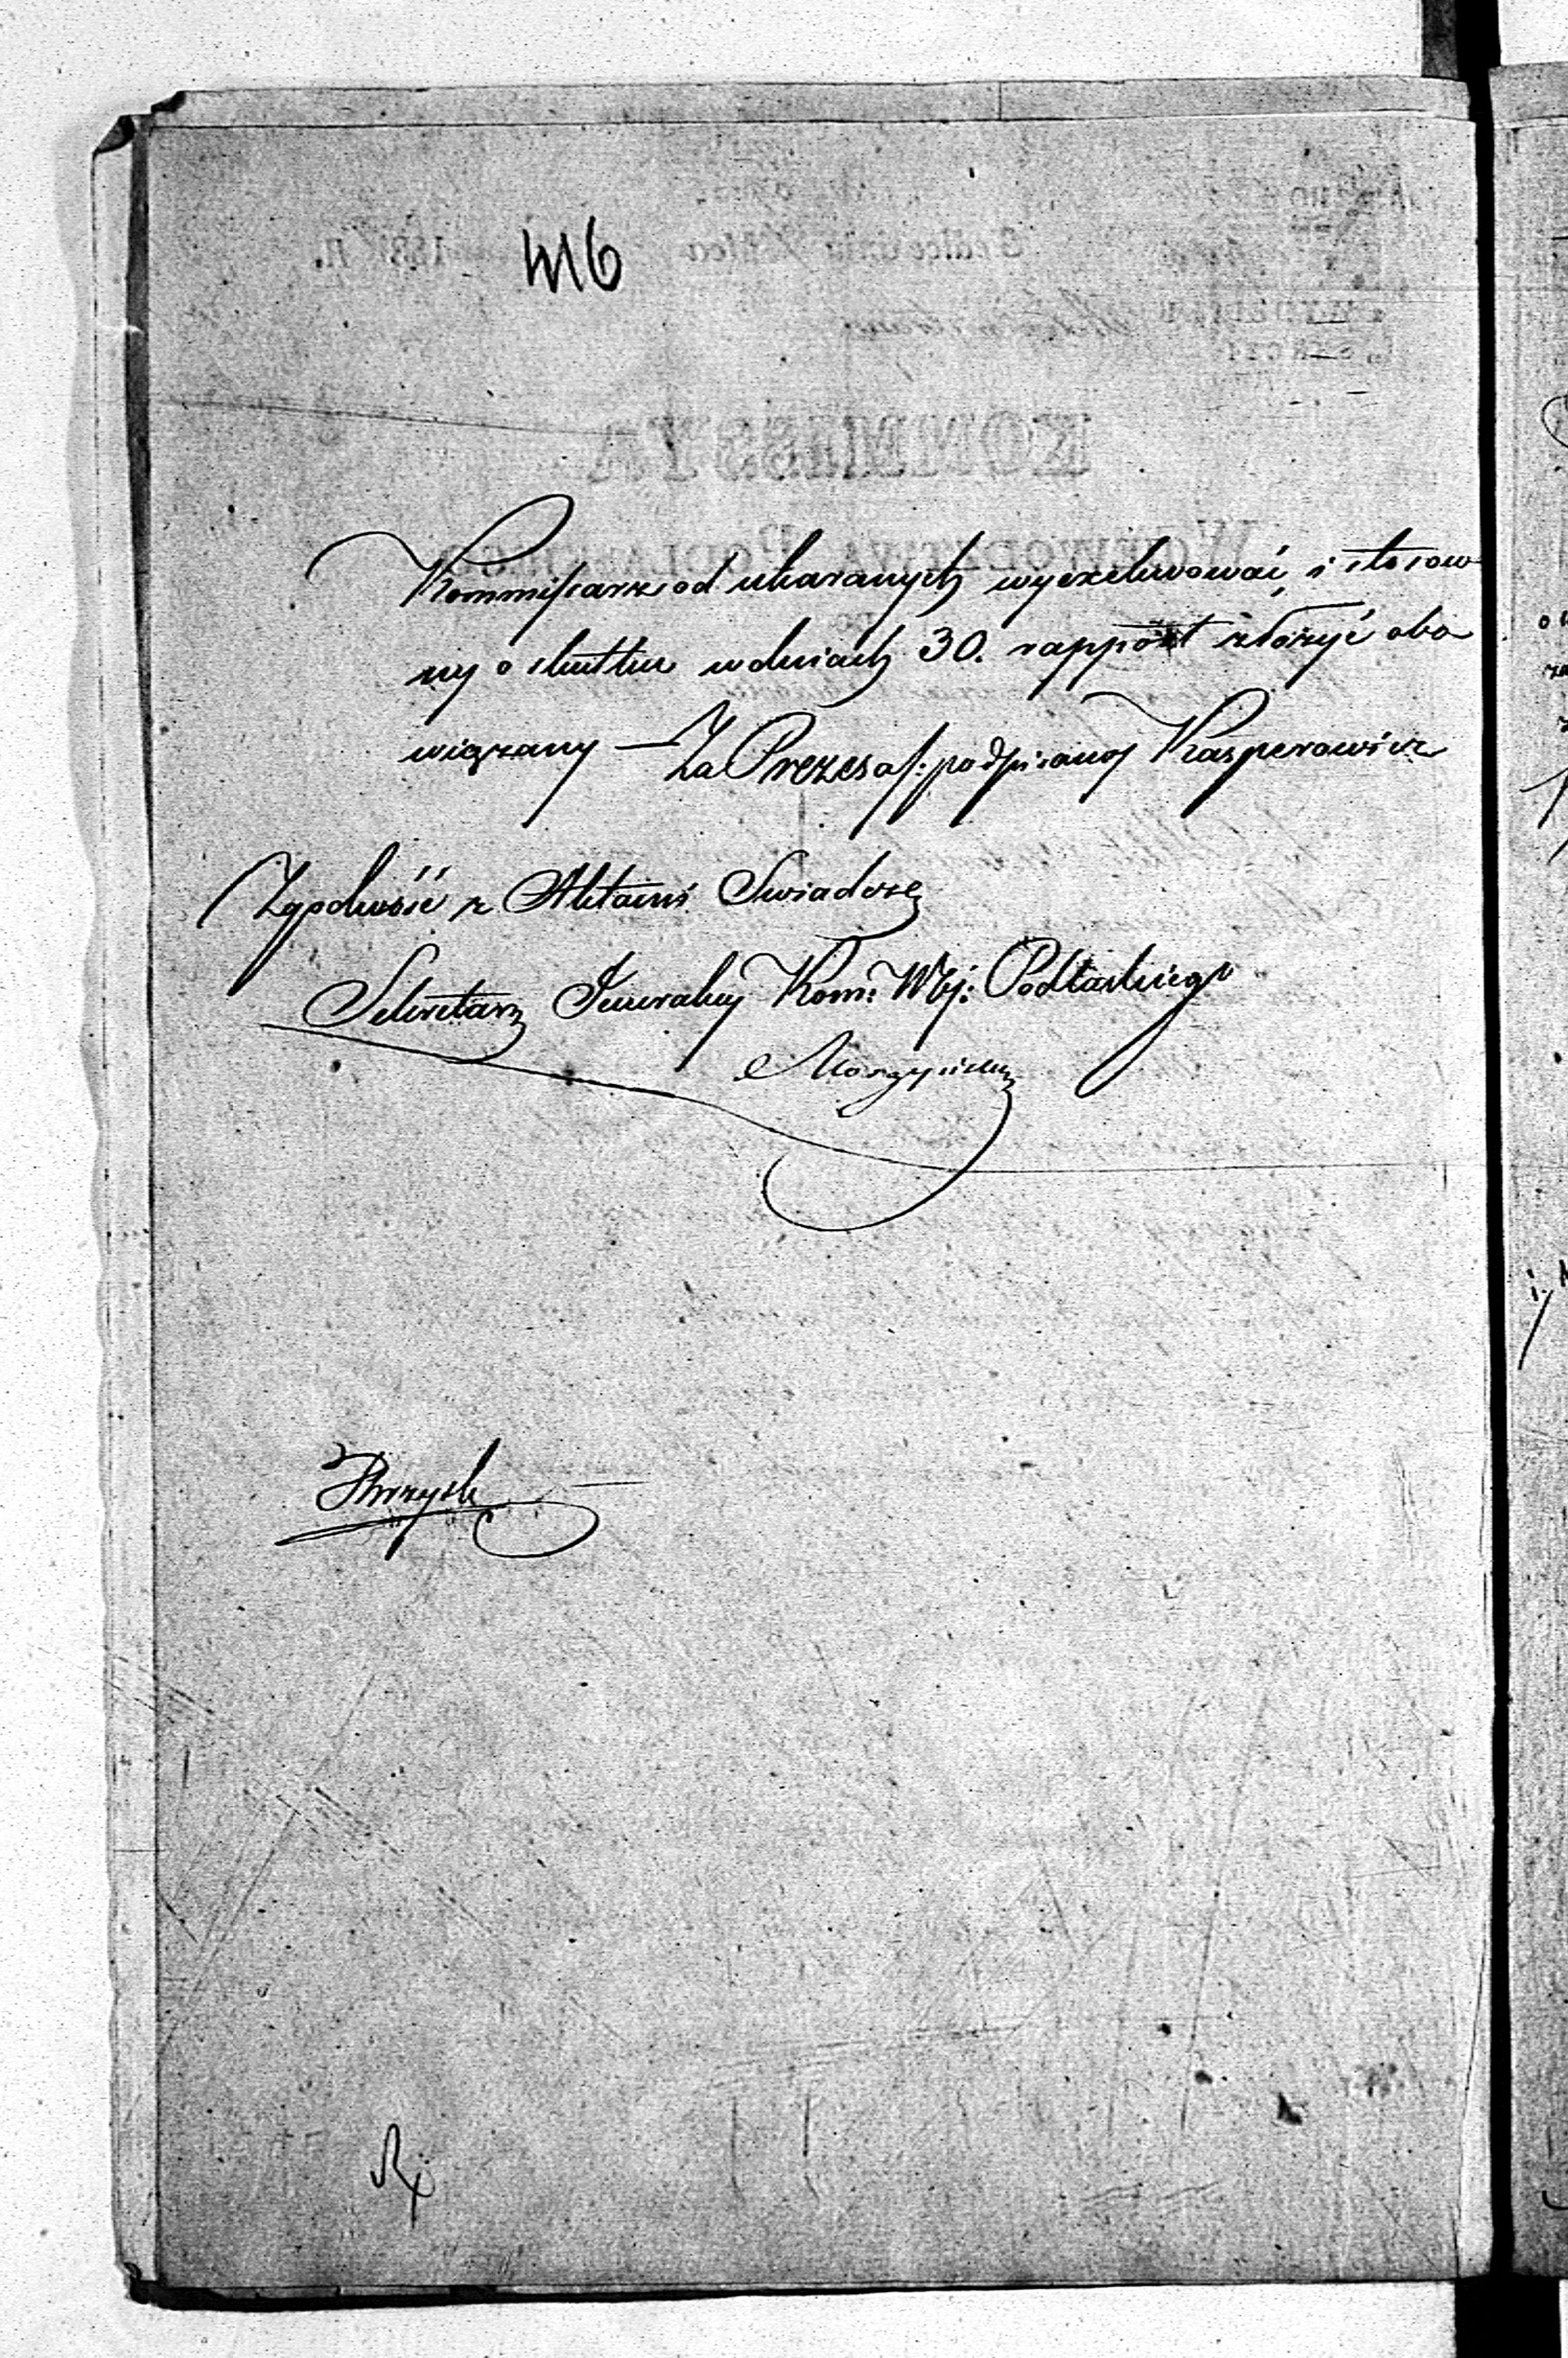 416
Kommissarz od ukaranych wyexekwować, i stosow
ny o skutku w dniach 30. rapport złożyć obo
wiązany — Za Prezesa /: podpisany Kasperowicz
Zgodność z Aktami Świadczę
Sekretarz Jeneralny Kom: Wój: Podlaskiego